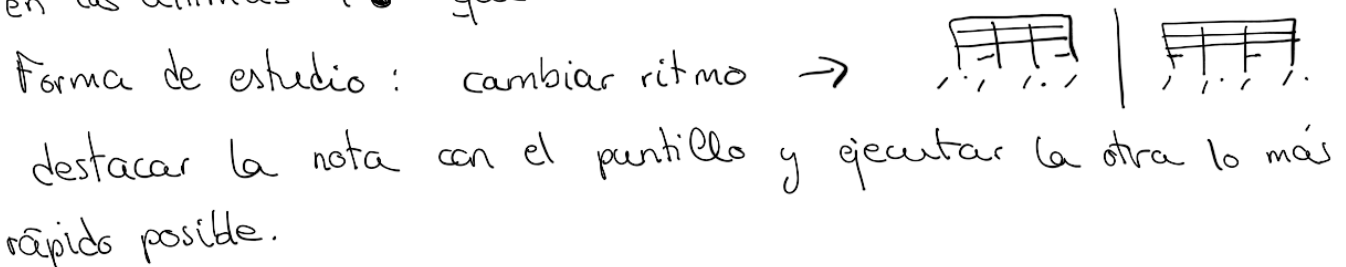 en las
Forma de estudio: cambiar ritmo →
destacar la nota con el puntillo y ejecutar la otra lo más
rápido posible.